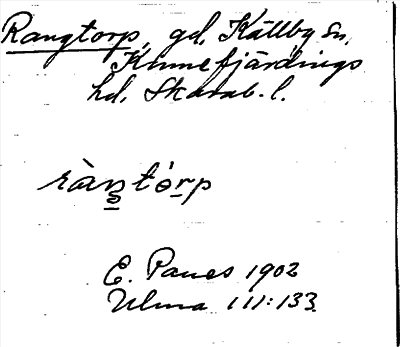 Rangtorp, gd, Källby sn,
Kinnefjärdings
hd, Skarab. l.
ràn̠tórp
E. Panes 1902
Ulma 111:133.